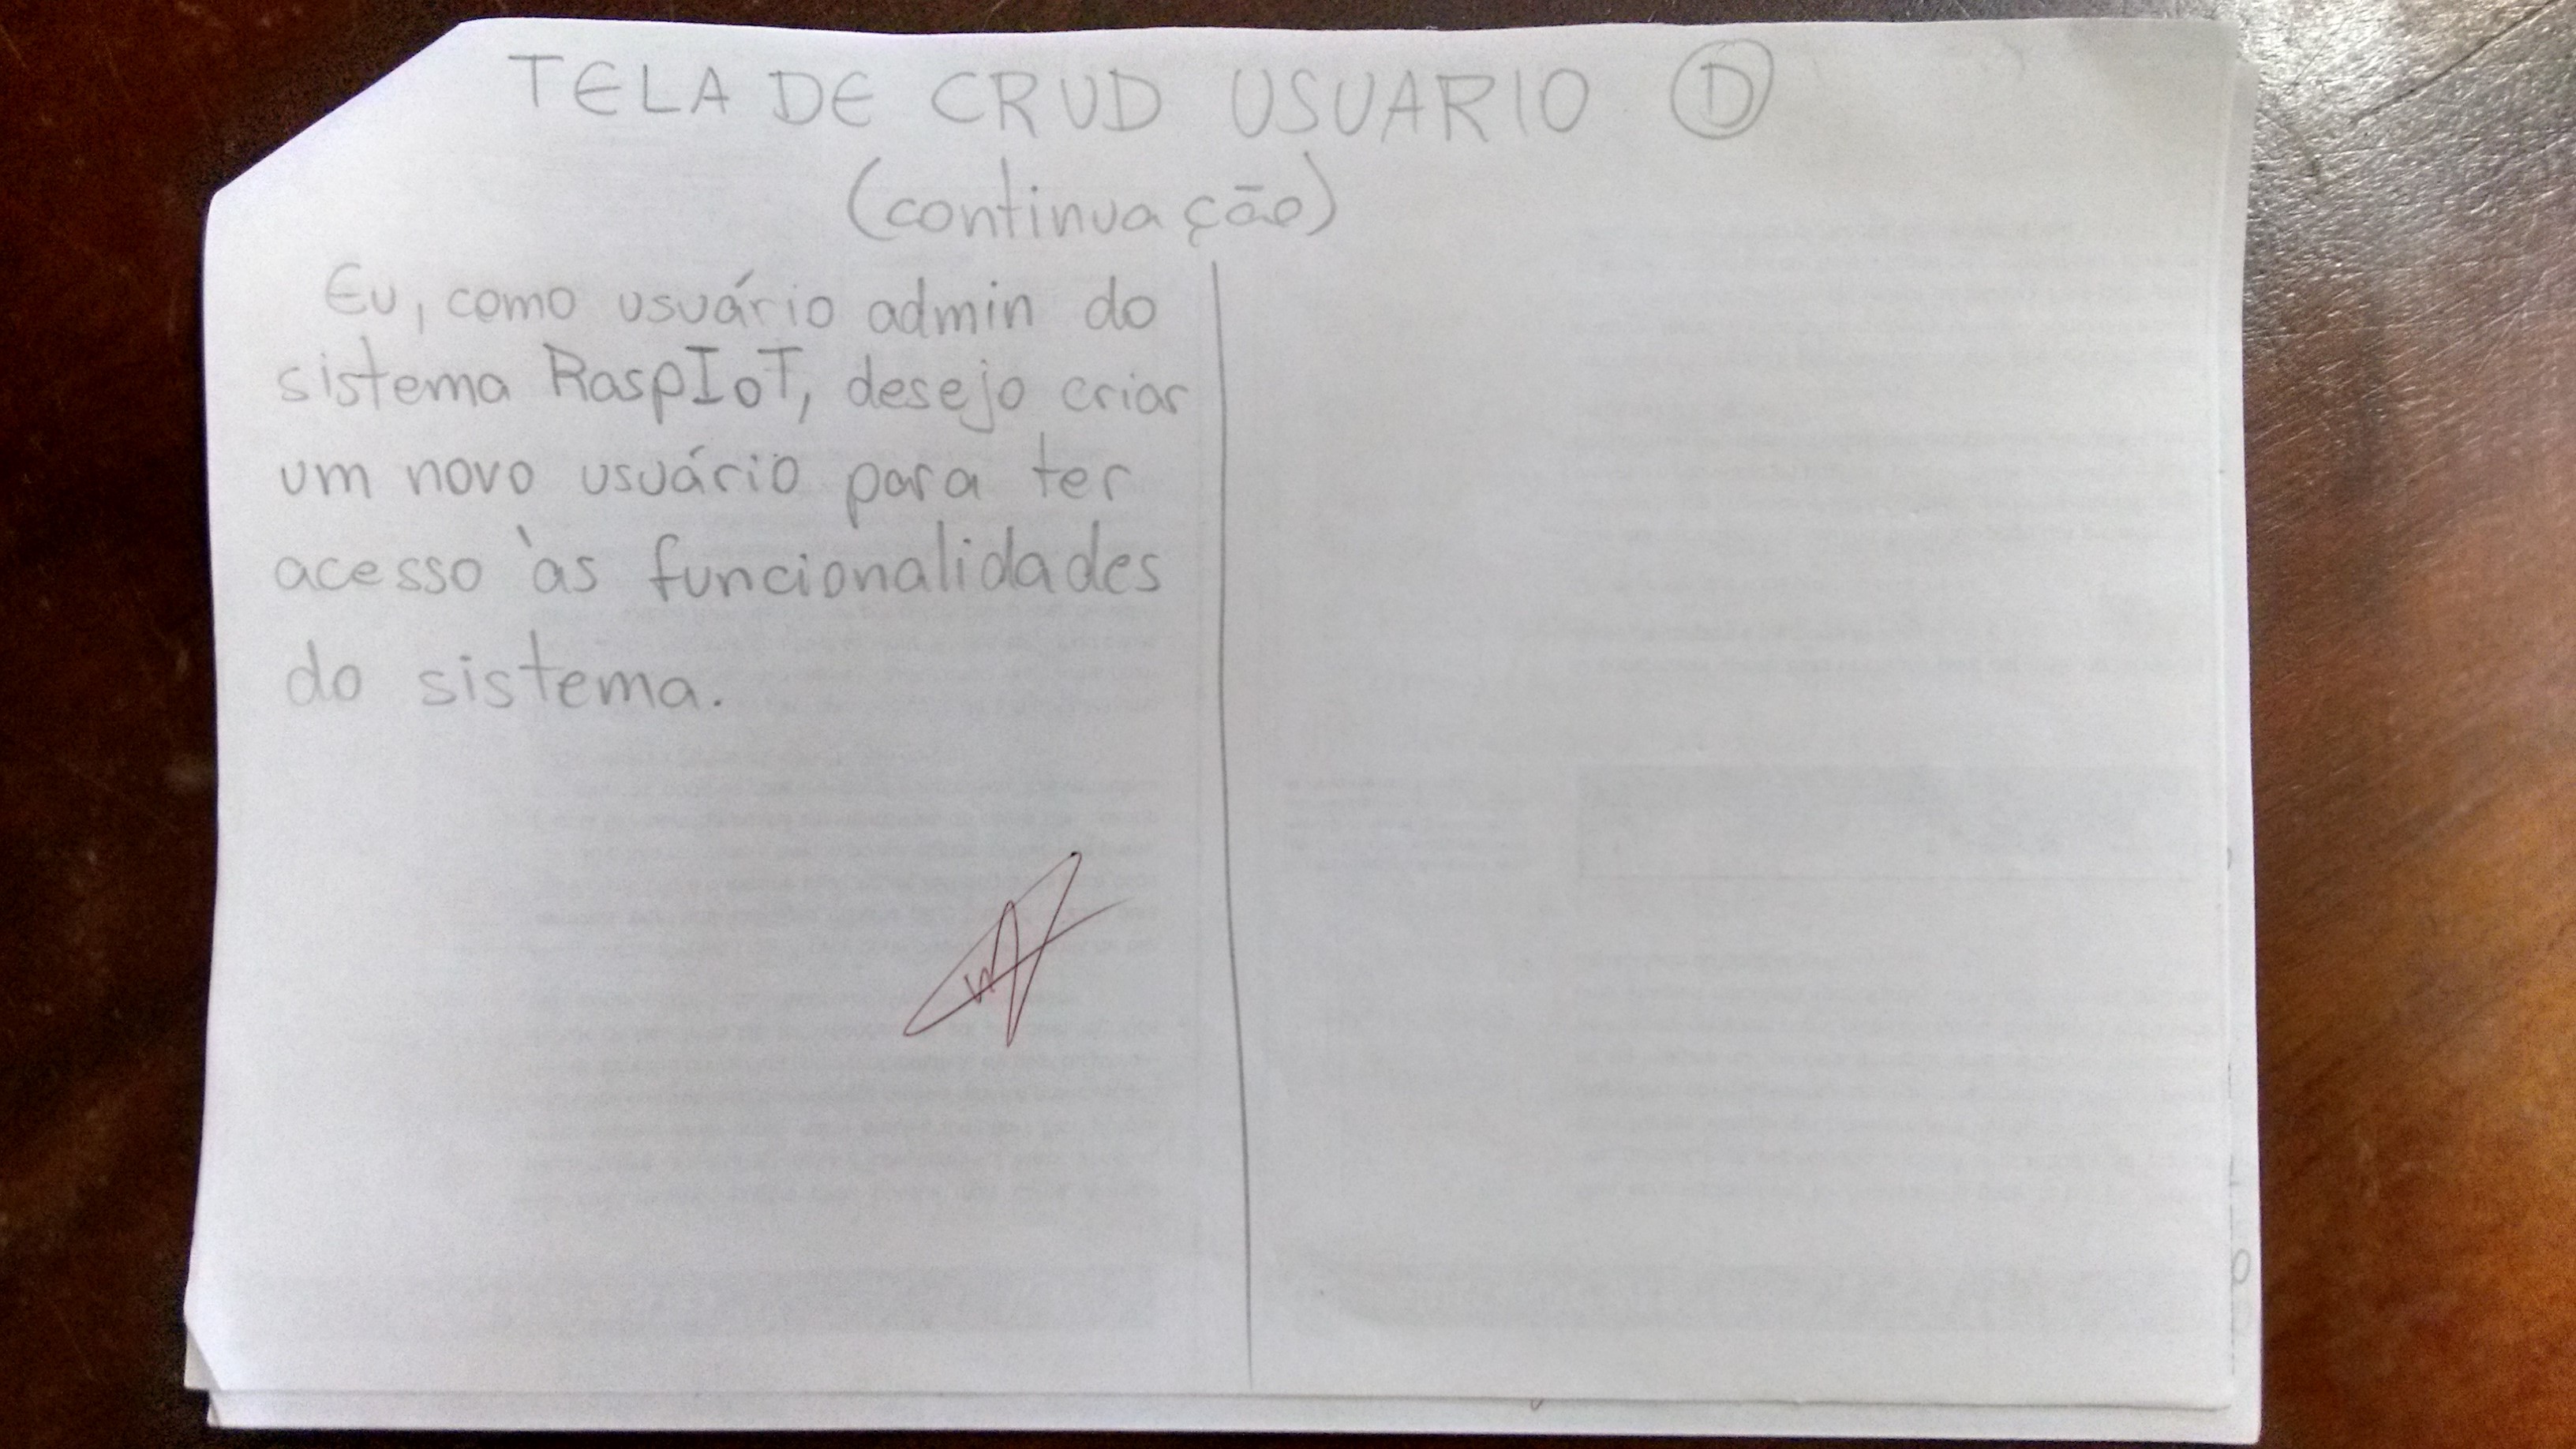 TELA DE CRUD USUARIO D
(continuação)
Eu, como usuário admin do
sistema RaspIoT, desejo criar
um novo usuário para ter
acesso às funcionalidades
do sistema.